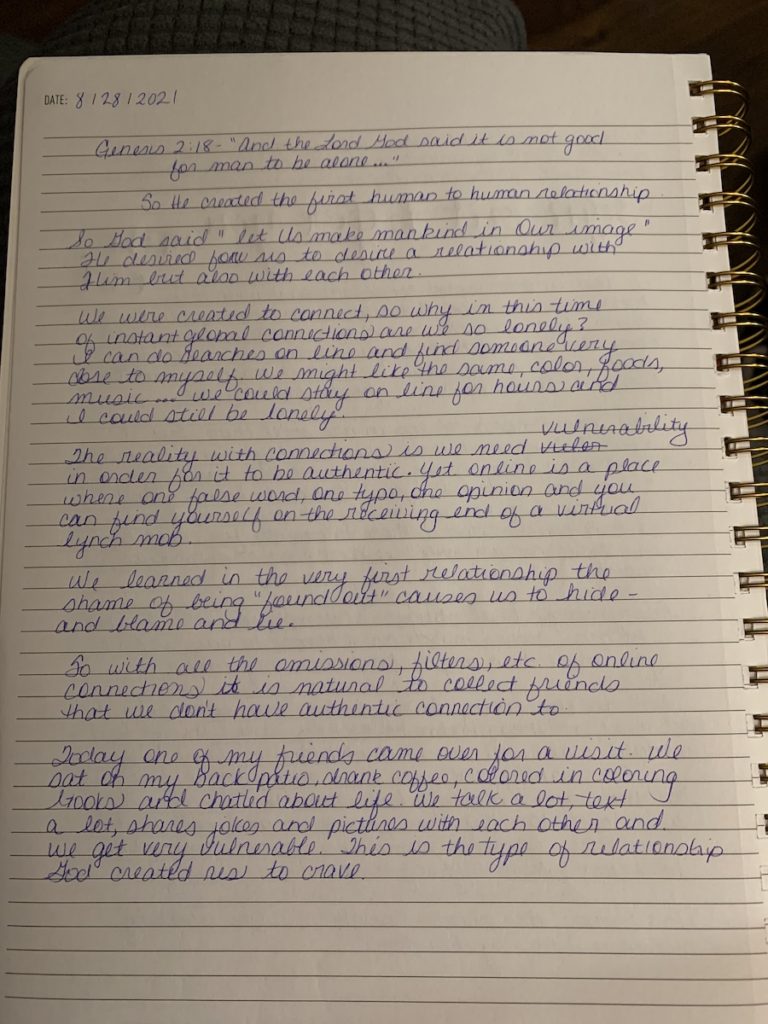 DATE: 8/28/2021
Genesis 2:18 - "And the Lord God said it is not good
for man to be alone..."
So He created the first human to human relationship
So God said "let Us make mankind in Our image"
He desired for us to desire a relationship with
Him but also with each other.
We were created to connect, so why in this time
of instant global connections are we so lonely?
I can do searches on line and find someone very
close to myself. We might like the same, color, foods,
music... we could stay on line for hours and
I could still be lonely.
vulnerability
The reality with connections is we need vulen
in order for it to be authentic. Yet online is a place
where one false word, one typo, one opinion and you
can find yourself on the receiving end of a virtual
lynch mob.
We learned in the very first relationship the
shame of being "found out" causes us to hide -
and blame and lie.
So with all the omissions, filters, etc. of online
connections it is natural to collect friends
that we don't have authentic connection to.
Today one of my friends came over for a visit. We
sat on my back patio, drank coffee, colored in coloring
books and chatted about life. We talk a lot, text
a lot, shares jokes and pictures with each other and
we get very vulnerable. This is the type of relationship
God created us to crave.